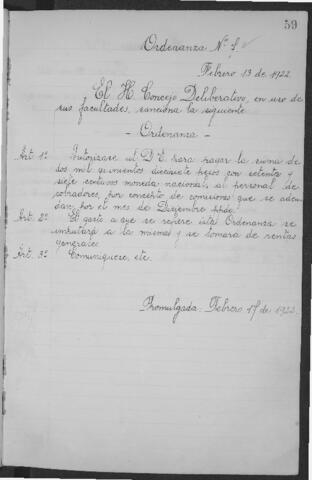 59
Ordenanza Nº
Febrero 13 de 1922
El H. Concejo Deliberativo, en uso de
sus facultades, sanciona la siguiente
- Ordenanza -
Art. 1º Autorízase al D. E. para pagar la suma de
dos mil quinientos diecisiete pesos con setenta y
siete centavos moneda nacional, al personal de
cobradores, por concepto de comisiones que se adeu-
dan, por el mes de Diciembre ppdo.
Art. 2º El gasto a que se refiere esta Ordenanza se
imputará a la misma y se tomará de rentas
generales.
Art. 3º Comuníquese, etc.
Promulgada: Febrero 17 de 1922.